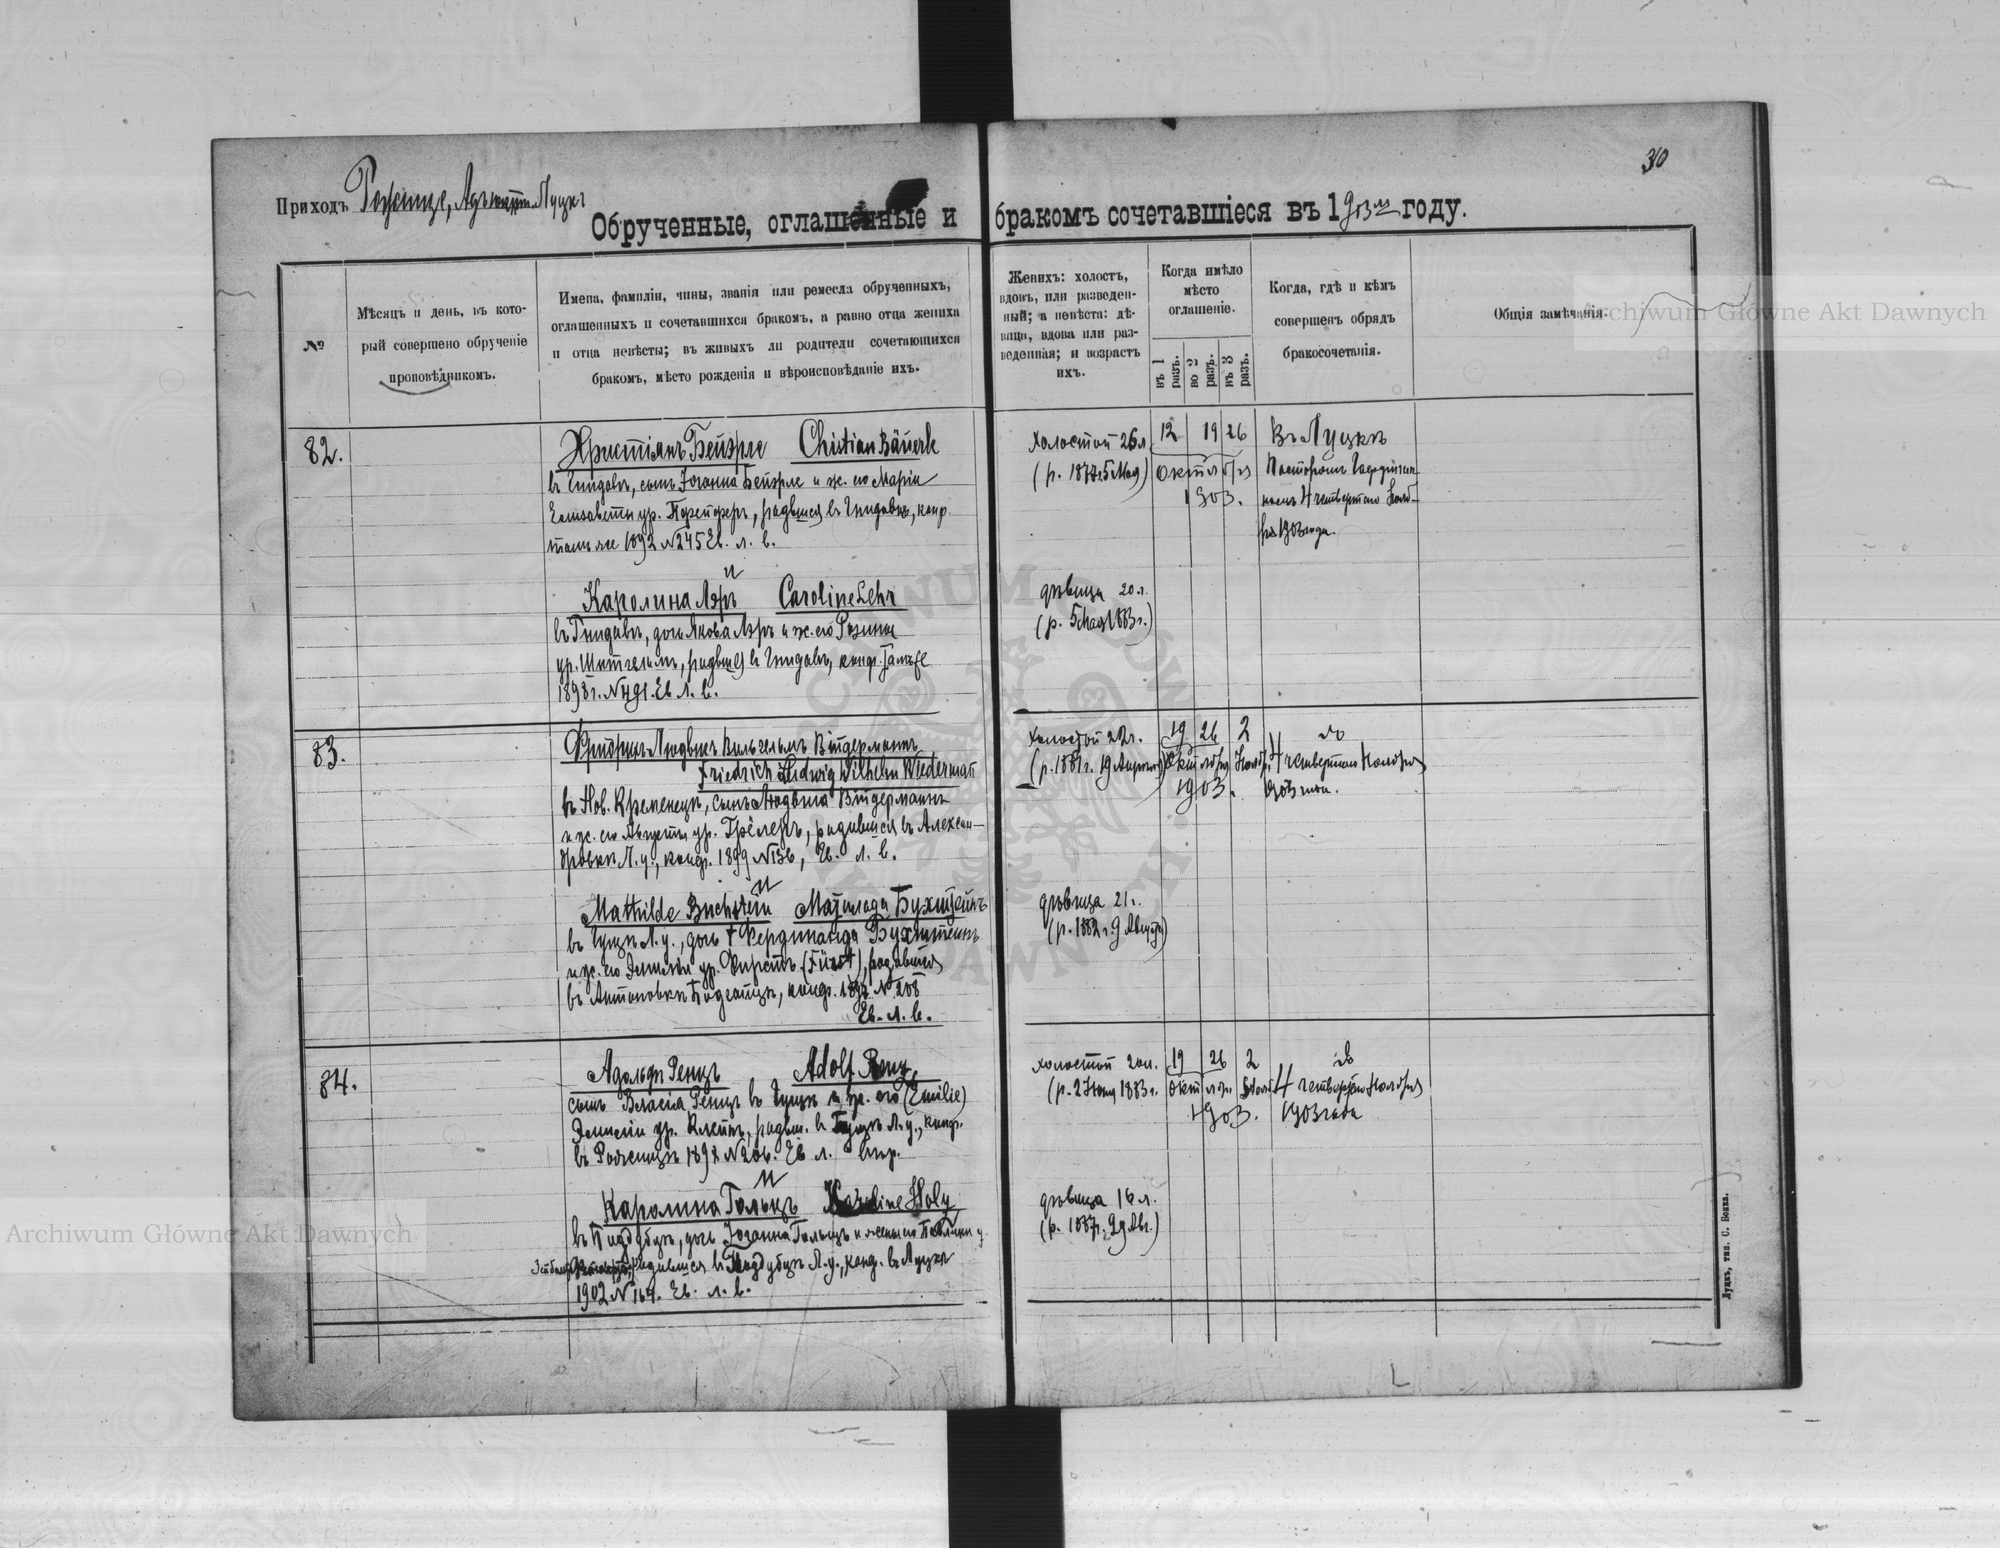 30
Приходъ Рожище, Адъюнкт. Луцкъ
Обрученные, оглашенные и бракомъ сочетавшіеся въ 1903 году.
№
Мѣсяцъ и день, въ который совершено обрученіе проповѣдникомъ.
Имена, фамиліи, чины, званія или ремесла обрученныхъ,
оглашенныхъ и сочетавшихся бракомъ, а равно отца жениха
и отца невѣсты; въ живыхъ ли родители сочетающихся
бракомъ, мѣсто рожденія и вѣроисповѣданіе ихъ.
Женихъ: холостъ,
вдовъ, или разведен-
ный; а невѣста: дѣ-
вица, вдова или раз-
веденная; и возрастъ
ихъ.
Когда имѣло
мѣсто
оглашеніе.
въ 1 разъ.
во 2 разъ.
въ 3 разъ.
Когда, гдѣ и кѣмъ
совершенъ обрядъ
бракосочетанія.
Общія замѣчанія.
82.
Христіанъ Бейэрле Christian Bäuerle
въ Гнидавѣ, сынъ Іоганна Бейэрле и ж. его Маріи
Елизаветы ур. Пфейферъ, родився въ Гнидавѣ, конф.
тамъ же 1892 №245 Ев. л. в.
Холостой 26 л.
(р. 1877 г. 5 Мая)
12 19 26
Октября
1903.
Въ Луцкѣ
Пасторомъ
4 четвертаго Нояб-
ря 1903 года.
и
Каролина Лэръ Caroline Lehr
въ Гнидавѣ, дочь Якова Лэръ и ж. его Розины
ур. , родвшся въ Гнидавѣ, конф. тамъ же
1898 г. № Ев. Л. в.
дѣвица 20 л.
(р. 5 Мая 1883 г.)
83.
Фридрихъ Людвигъ Вильгельмъ Видерманнъ
Friedrich Ludwig Wilhelm Wiederman
въ Нов. Кременецъ, сынъ Людвига Видерманнъ
и ж. его Августы ур. , родившся въ Алексан-
дровкѣ Л. у., конф. 1899 №136, Ев. л. в.
Холостой 22 г.
(р. 1881 г. 19 Апрѣля)
19 26 2
Октября Нояб.
1903.
do
4 четвертаго Ноября
1903 года.
и
Mathilde Buchstein Матильда Бухштейнъ
въ Луцкѣ Л. у., дочь † Фердинанда Бухштейнъ
и ж. его Эмиліи ур. Фирстъ (Fürst), родившся
въ Антоновкѣ , конф. №208
Ев. л. в.
дѣвица 21 г.
(р. 1882 г. 9 Августа)
84.
Адольфъ Ренцъ Adolf Renz
сынъ Ренцъ въ и ж. его (Emilie)
Эмиліи ур. , родвш. въ Л. у., конф.
въ Рожищѣ 1898 №206. Ев. л. вѣр.
холостой 20 л.
(р. 2 1883 г.
19 26 2
Октября Нояб.
1903.
do
4 четвертаго Ноября
1903 года
и
Каролина Гольцъ Karoline Holz
въ Поддубцѣ, дочь Іоганна Гольцъ и жены его Павлины у.
родившся въ Поддубцѣ Л. у., конф. въ Луцкѣ
1902 №164. Ев. л. в.
дѣвица 16 л.
(р. 1887 г. 29 Авг.)
Луцкъ, тип. С. Бонка.
Archiwum Główne Akt Dawnych
Archiwum Główne Akt Dawnych
ARCHIWUM GŁÓWNE AKT DAWNYCH